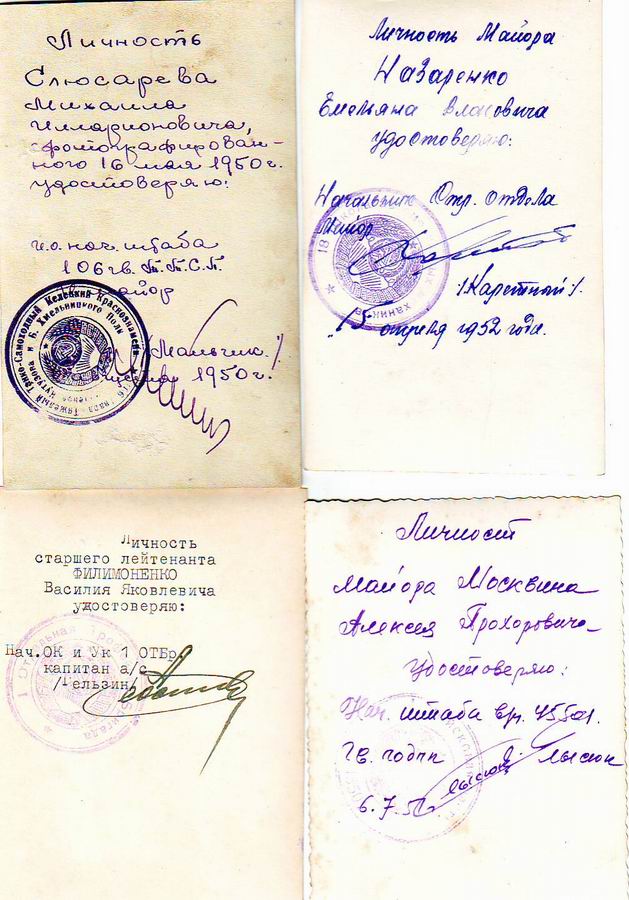 Личность
Слюсарева
Михаила
Илларионовича,
сфотографирован-
ного 16 мая 1950г.
удостоверяю:
и.о. нач. штаба
106 гв.
майор
/Мальчик./
1950г.
Личность Майора
Назаренко
Емельяна Власовича
удостоверяю:
Начальник Отр. отдела
Майор
/Каретный/.
"15" апреля 1952 года.
Личность
старшего лейтенанта
ФИЛИМОНЕНКО
Василия Яковлевича
удостоверяю:
Нач.ОК и Ук 1 ОТБр.
капитан а/с
/Гельзин/
Личност
майора Москвина
Алексея Прохоровича
удостоверяю:
Нач. штаба в/ч. 45501.
Гв. подпп Лысюк
6.7.5